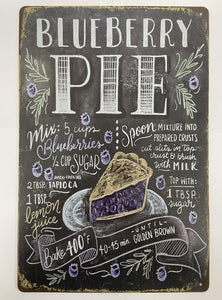 BLUEBERRY
PIE
Mix: 5 cups
Blueberries
½ CUP SUGAR
QUICK-COOKING
2 TBSP. TAPIOCA
1 TBSP
lemon
juice
Spoon MIXTURE INTO
PREPARED CRUSTS
cut slits in top
crust & brush
with MILK
TOP WITH:
1 TBSP.
sugar
Bake 400°F
40-45 min.
UNTIL
GOLDEN BROWN